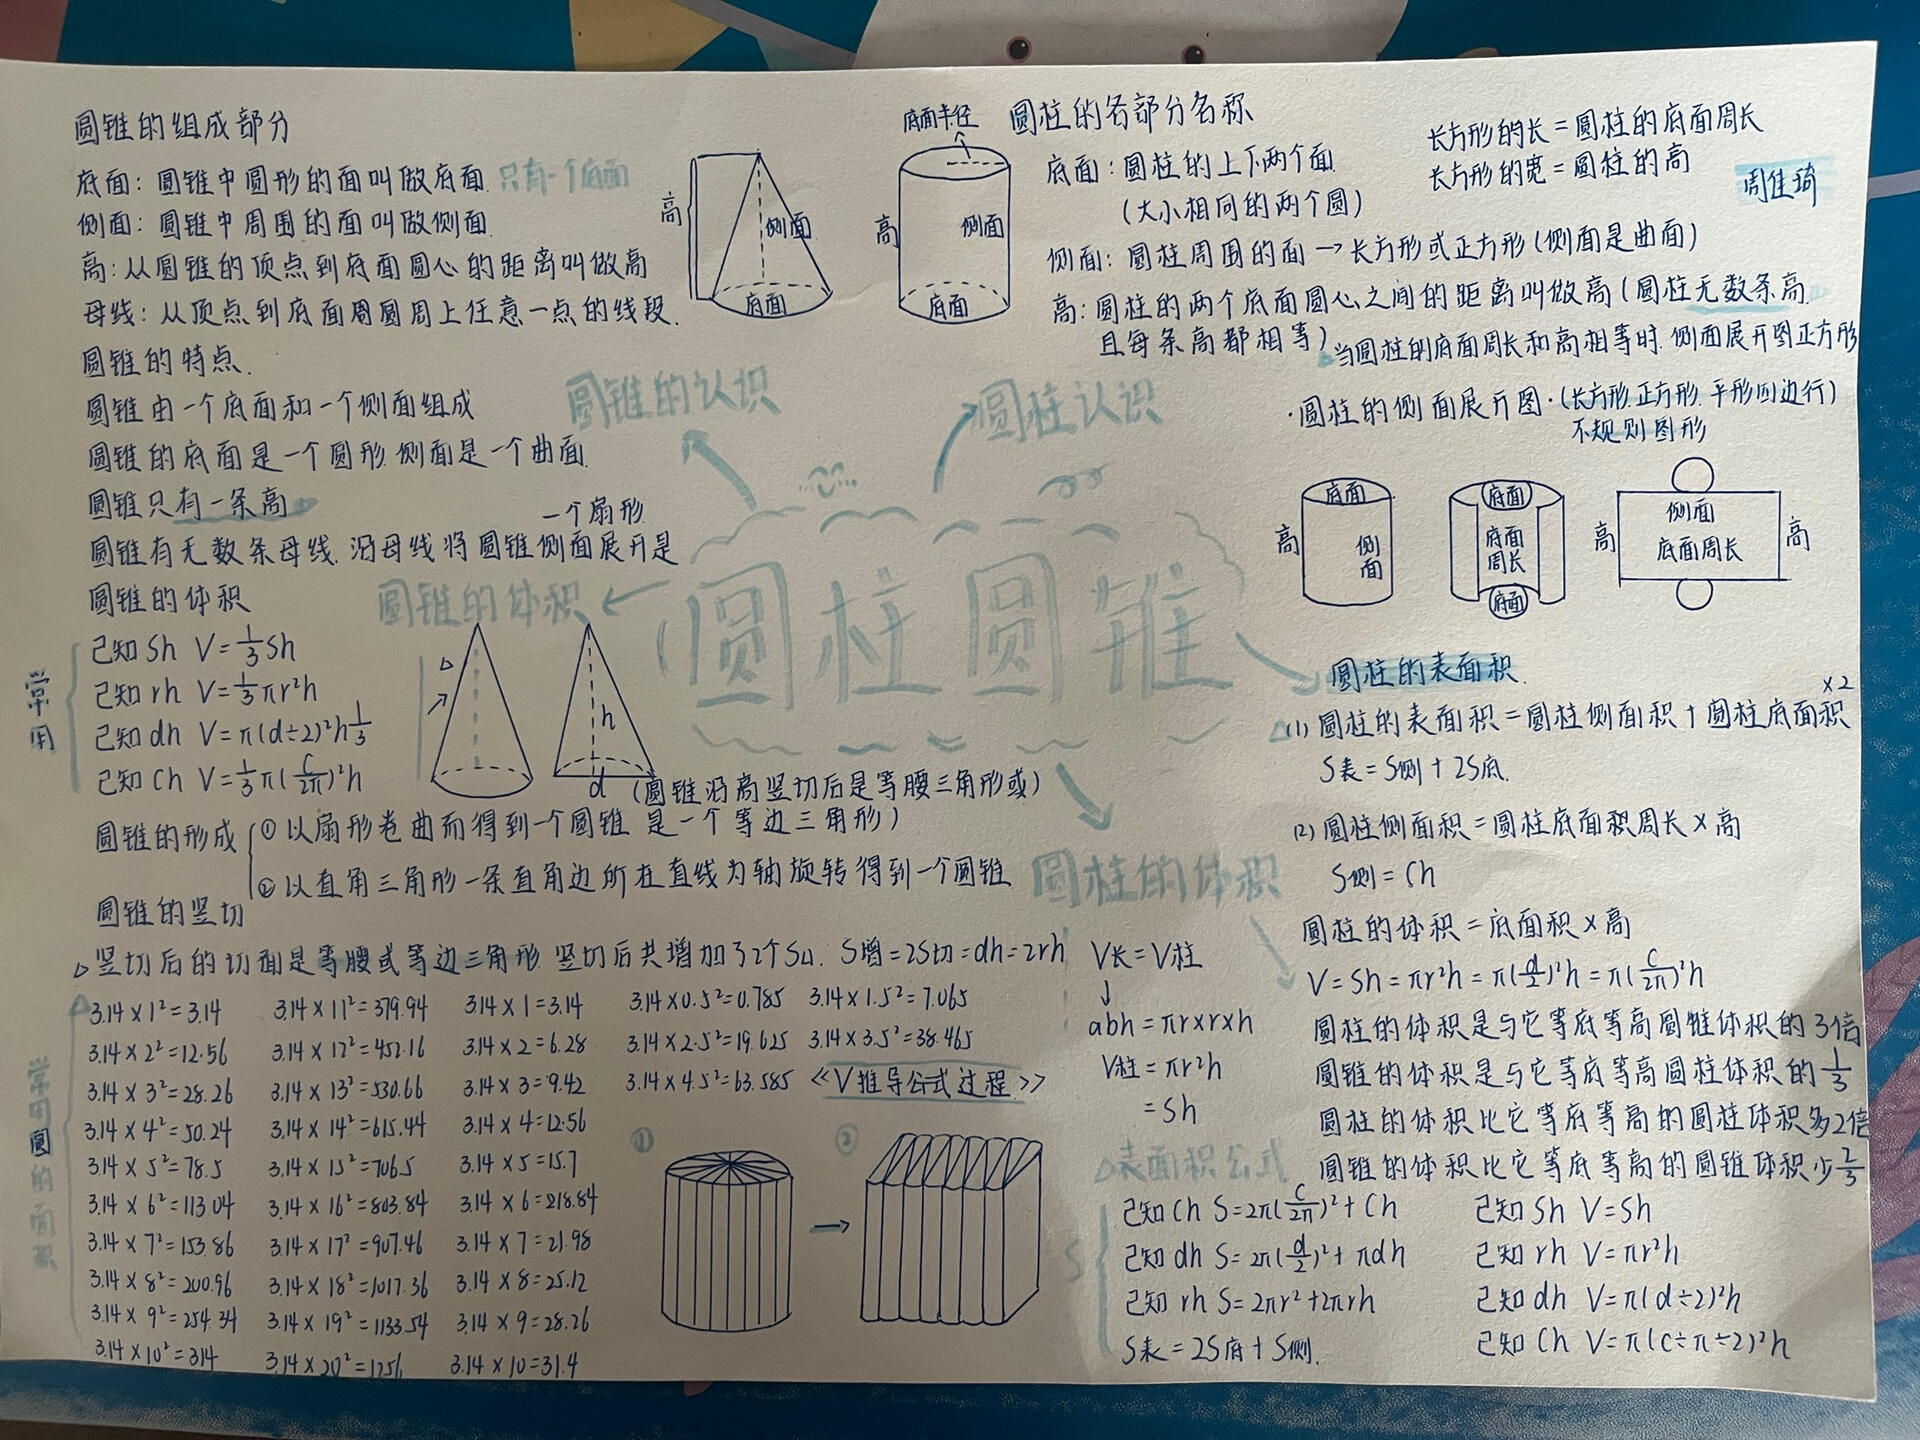 圆锥的组成部分
底面：圆锥中圆形的面叫做底面.只有一个底面
侧面：圆锥中周围的面叫做侧面.
高：从圆锥的顶点到底面圆心的距离叫做高
母线：从顶点到底面周圆周上任意一点的线段.
圆锥的特点.
圆锥由一个底面和一个侧面组成
圆锥的底面是一个圆形.侧面是一个曲面.
圆锥只有一条高
一个扇形.
圆锥有无数条母线.沿母线将圆锥侧面展开是
高
侧面
底面
底面半径
高
侧面
底面
圆柱的各部分名称
底面：圆柱的上下两个面.
（大小相同的两个圆）
侧面：圆柱周围的面→长方形或正方形（侧面是曲面）
高：圆柱的两个底面圆心之间的距离叫做高（圆柱无数条高.
且每条高都相等）
当圆柱的底面周长和高相等时.侧面展开图正方形
长方形的长＝圆柱的底面周长
长方形的宽＝圆柱的高
周佳琦
·圆柱的侧面展开图·（长方形.正方形.平形四边行）
不规则图形
底面
高
侧面
底面
底面周长
底面
高
侧面
底面周长
高
圆锥的认识
圆柱认识
圆柱圆锥
圆锥的体积
圆锥的体积
常用
已知Sh V=1/3Sh
已知rh V=1/3πr²h
已知dh V=π(d÷2)²h1/3
已知Ch V=1/3π(C/2π)²h
h
d
（圆锥沿高竖切后是等腰三角形或）
圆锥的形成
①以扇形卷曲而得到一个圆锥
是一个等边三角形）
②以直角三角形一条直角边所在直线为轴旋转得到一个圆锥
圆锥的竖切
△竖切后的切面是等腰或等边三角形.竖切后共增加了2个S△. S增=2S切=dh=2rh
常用圆的面积
3.14×1²=3.14
3.14×2²=12.56
3.14×3²=28.26
3.14×4²=50.24
3.14×5²=78.5
3.14×6²=113.04
3.14×7²=153.86
3.14×8²=200.96
3.14×9²=254.34
3.14×10²=314
3.14×11²=379.94
3.14×12²=452.16
3.14×13²=530.66
3.14×14²=615.44
3.14×15²=706.5
3.14×16²=803.84
3.14×17²=907.46
3.14×18²=1017.36
3.14×19²=1133.54
3.14×20²=1256
3.14×1=3.14
3.14×2=6.28
3.14×3=9.42
3.14×4=12.56
3.14×5=15.7
3.14×6=218.84
3.14×7=21.98
3.14×8=25.12
3.14×9=28.26
3.14×10=31.4
3.14×0.5²=0.785
3.14×2.5²=19.625
3.14×4.5²=63.585
3.14×1.5²=7.065
3.14×3.5²=38.465
《V推导公式过程》
①
②
圆柱的体积
V长=V柱
↓
abh=πr×r×h
V柱=πr²h
=Sh
圆柱的表面积.
×2
△(1)圆柱的表面积＝圆柱侧面积＋圆柱底面积
S表=S侧+2S底.
(2)圆柱侧面积＝圆柱底面积周长×高
S侧=Ch
圆柱的体积＝底面积×高
V=Sh=πr²h=π(d/2)²h=π(C/2π)²h
圆柱的体积是与它等底等高圆锥体积的3倍
圆锥的体积是与它等底等高圆柱体积的1/3
圆柱的体积比它等底等高的圆柱体积多2倍
圆锥的体积比它等底等高的圆锥体积少2/3
△表面积公式
S
已知Ch S=2π(C/2π)²+Ch
已知dh S=2π(d/2)²+πdh
已知rh S=2πr²+2πrh
S表=2S底+S侧.
已知Sh V=Sh
已知rh V=πr²h
已知dh V=π(d÷2)²h
已知Ch V=π(C÷π÷2)²h